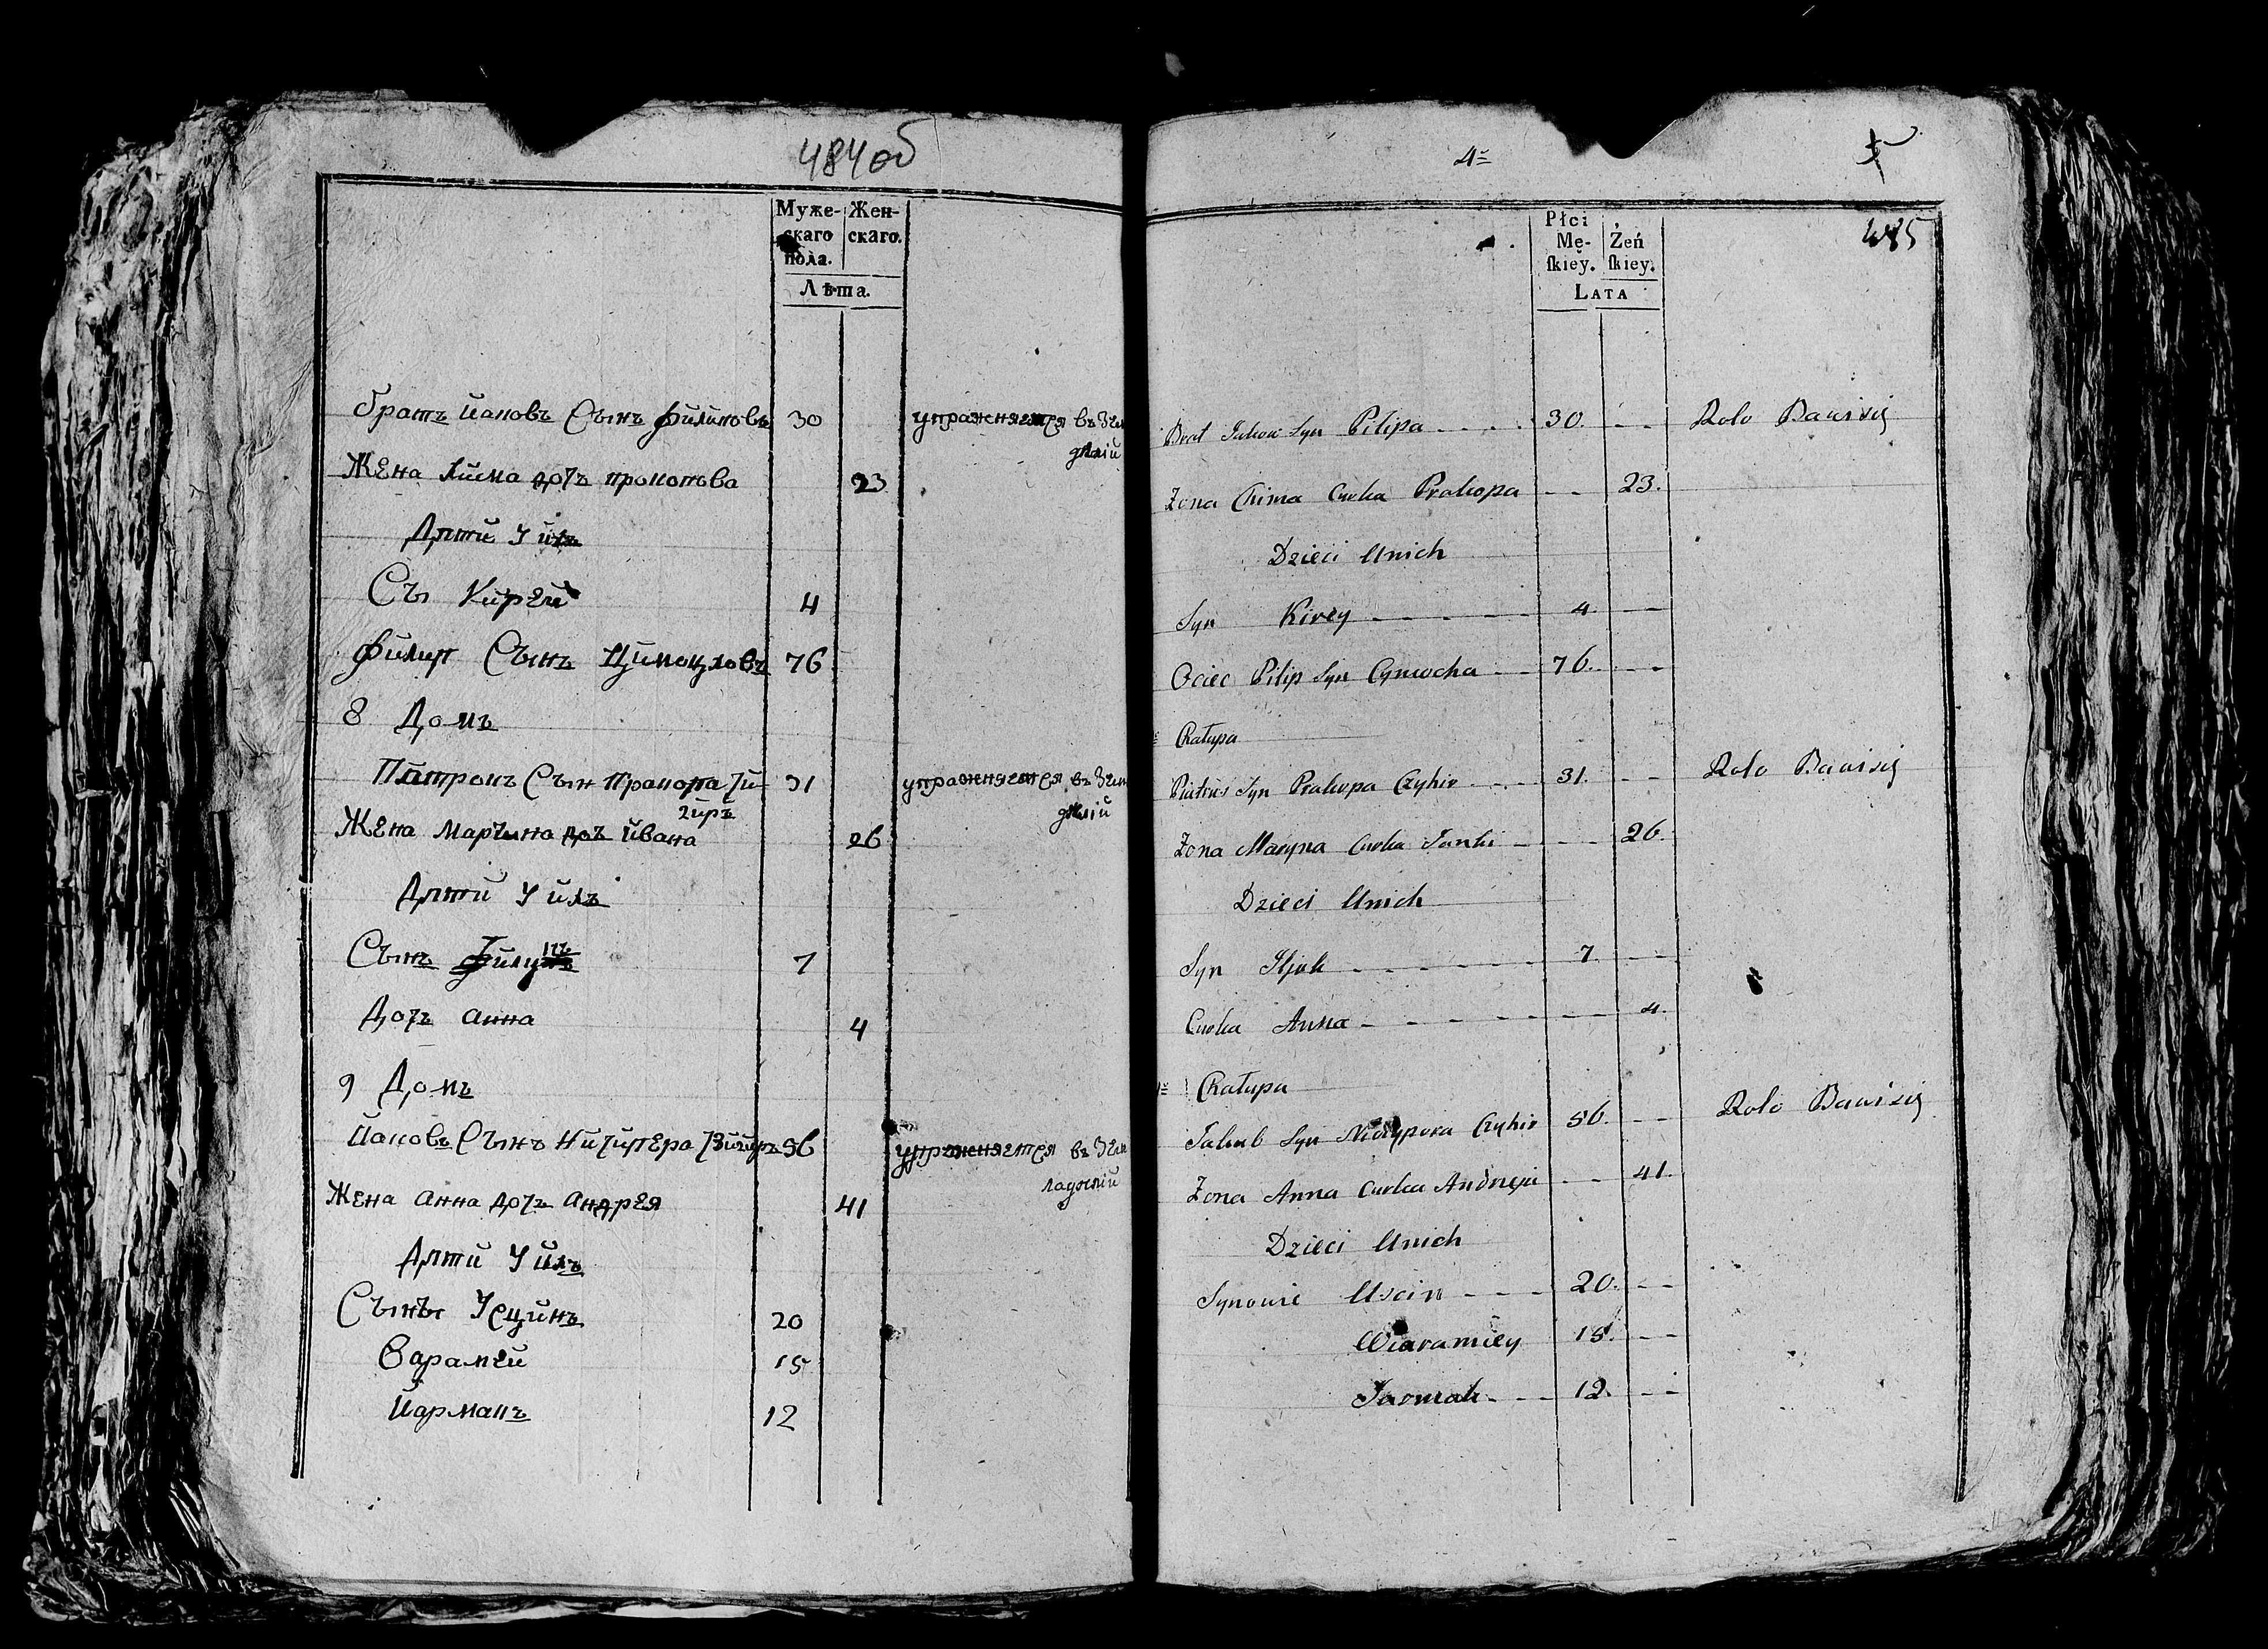 484об
Муже-
скаго
пола.
Жен-
скаго.
Лѣта.
братъ иаковъ Сынъ филиповъ 30 упражняется въ Зем
дѣлiй
Жена Хима дочъ прокопова 23
Дѣти У ихъ
Сы Кирей 4
филип Сынъ Цимоховъ 76
8 Домъ
Пiатрокъ Сын Прокопа Чи- 31 упражняется въ Зем
гиръ
дѣлiй
Жена Марына дочъ йвана 26
Дѣти У ихъ
Сынъ 7
Дочъ анна 4
9 Домъ
Иаковъ Сынъ Ничипера Чигиръ 56 упражняется въ Зем
Жена анна дочъ андрея 41
Дѣти У ихъ
Сыны Усцинъ 20
Варамей 15
Иармакъ 12
4е
485
Płci
Mę-
ſkiey.
Żeń
ſkiey.
LATA
Brat Jakow Syn Pilipa 30. Rolo Bawi się
Zona Chima Curka Prakopa 23.
Dzieci Unich
Syn Kirey 4
Ociec Pilip Syn Cymocha 76.
Chałupa
Piatruś Syn Prakopa Czyhir 31. Rolo Bawi się
Zona Maryna Curka Janki 26.
Dzieci Unich
Syn Iljuk 7
Curka Anna 4.
Chałupa
Jakub Syn Niczypora Czyhir 56. Rolo Bawi się
Zona Anna Curka Andreja 41.
Dzieci Unich
Synowie Uscin 20.
Wiaramiey 15.
Jarmak 12.